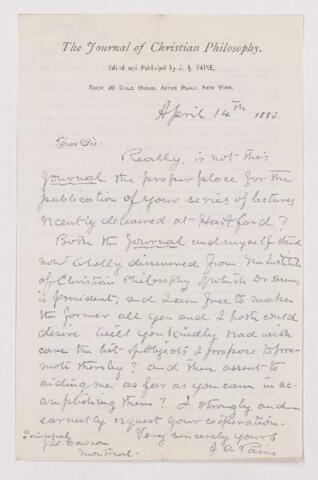 The Journal of Christian Philosophy.
Edited and Published by J. A. PAINE,
ROOM 30 BIBLE HOUSE, ASTOR PLACE, NEW YORK.
April 14th 1883.
Dear Sir.
Really, is not this
Journal the proper place for the
publication of your series of lectures
recently delivered at Hartford?
Both the Journal and myself stand
now wholly divorced from the Institute
of Christian Philosophy of which Dr Deems
is president, and I am free to make
the former all you and I both could
desire. Will you kindly read with
care the list of objects I propose to pro-
mote thereby? and then assent to
aiding me as far as you can in ac-
complishing them? I strongly and
earnestly request your coöperation.
Very sincerely yours
J A Paine
Principal
J. W. Dawson
Montreal.